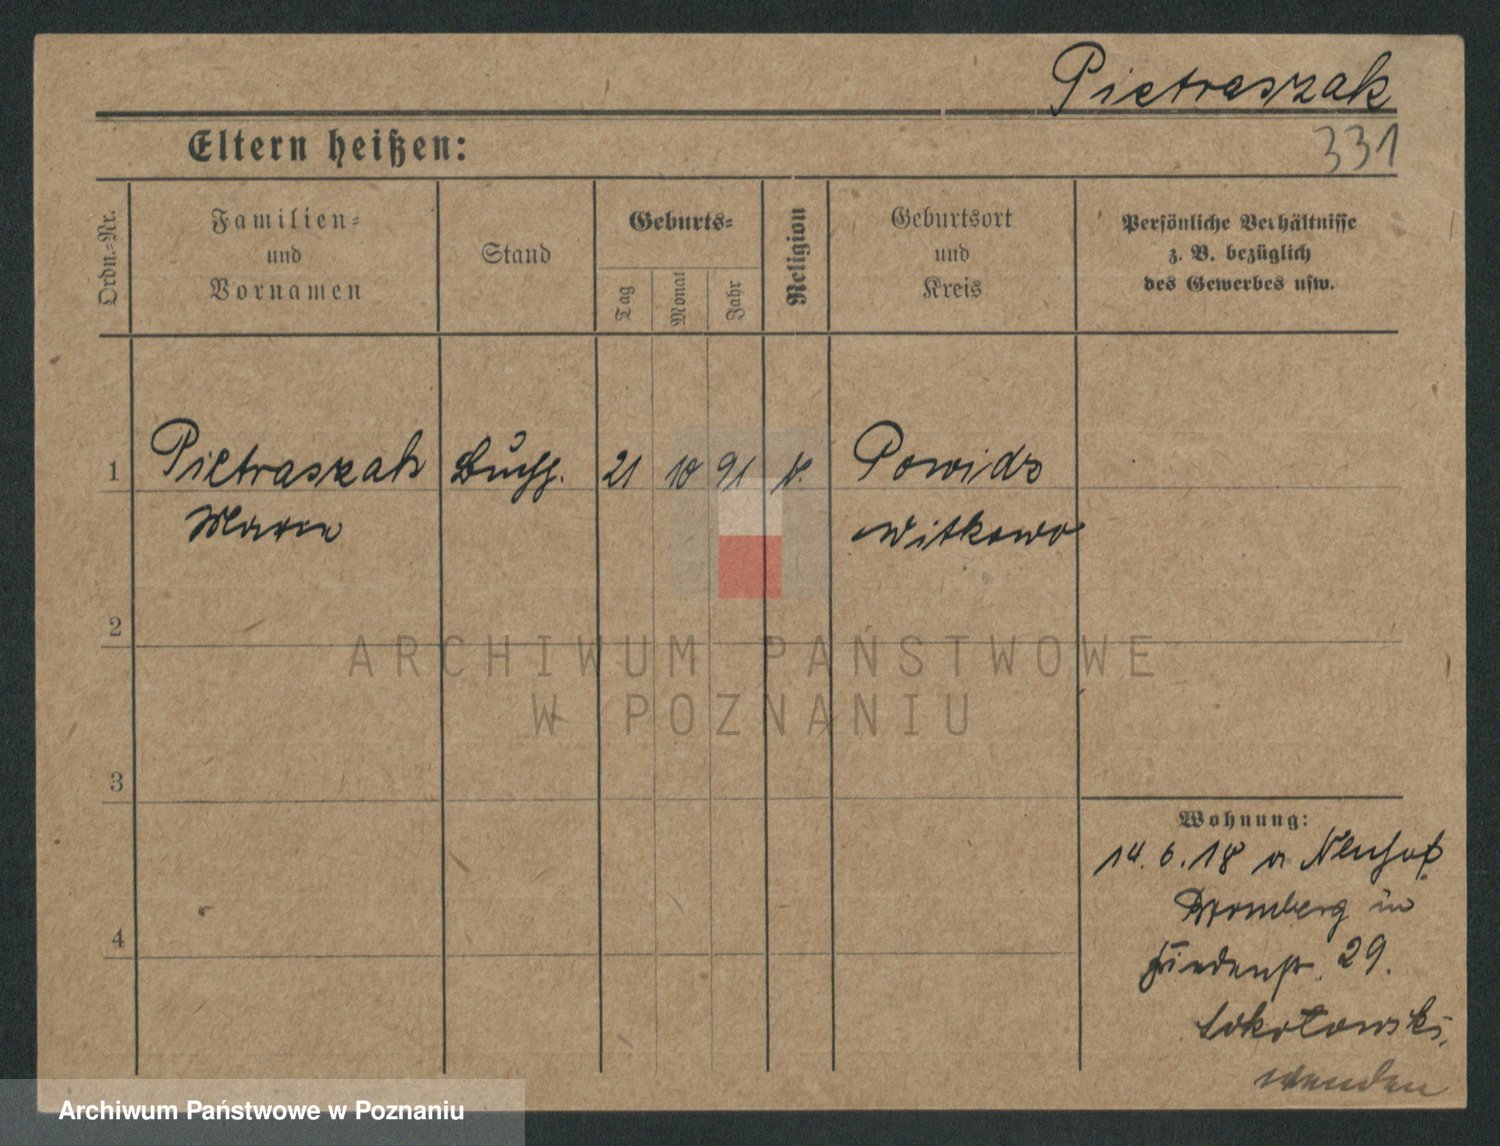 Pietraszak
331
Eltern heißen:
Ordn.-Nr.
Familien-
und
Vornamen
Stand
Geburts-
Tag
Monat
Jahr
Religion
Geburtsort
und
Kreis
Persönliche Verhältnisse
z. B. bezüglich
des Gewerbes usw.
1 Pietraszak Buchh. 21 10 91 k. Powidz
Marie Witkowo
2
3
4
Wohnung:
14. 6. 18 a Neuhof
Bromberg in
Friedenstr. 29.
Sokołowski.
wenden
ARCHIWUM PAŃSTWOWE
W POZNANIU
Archiwum Państwowe w Poznaniu